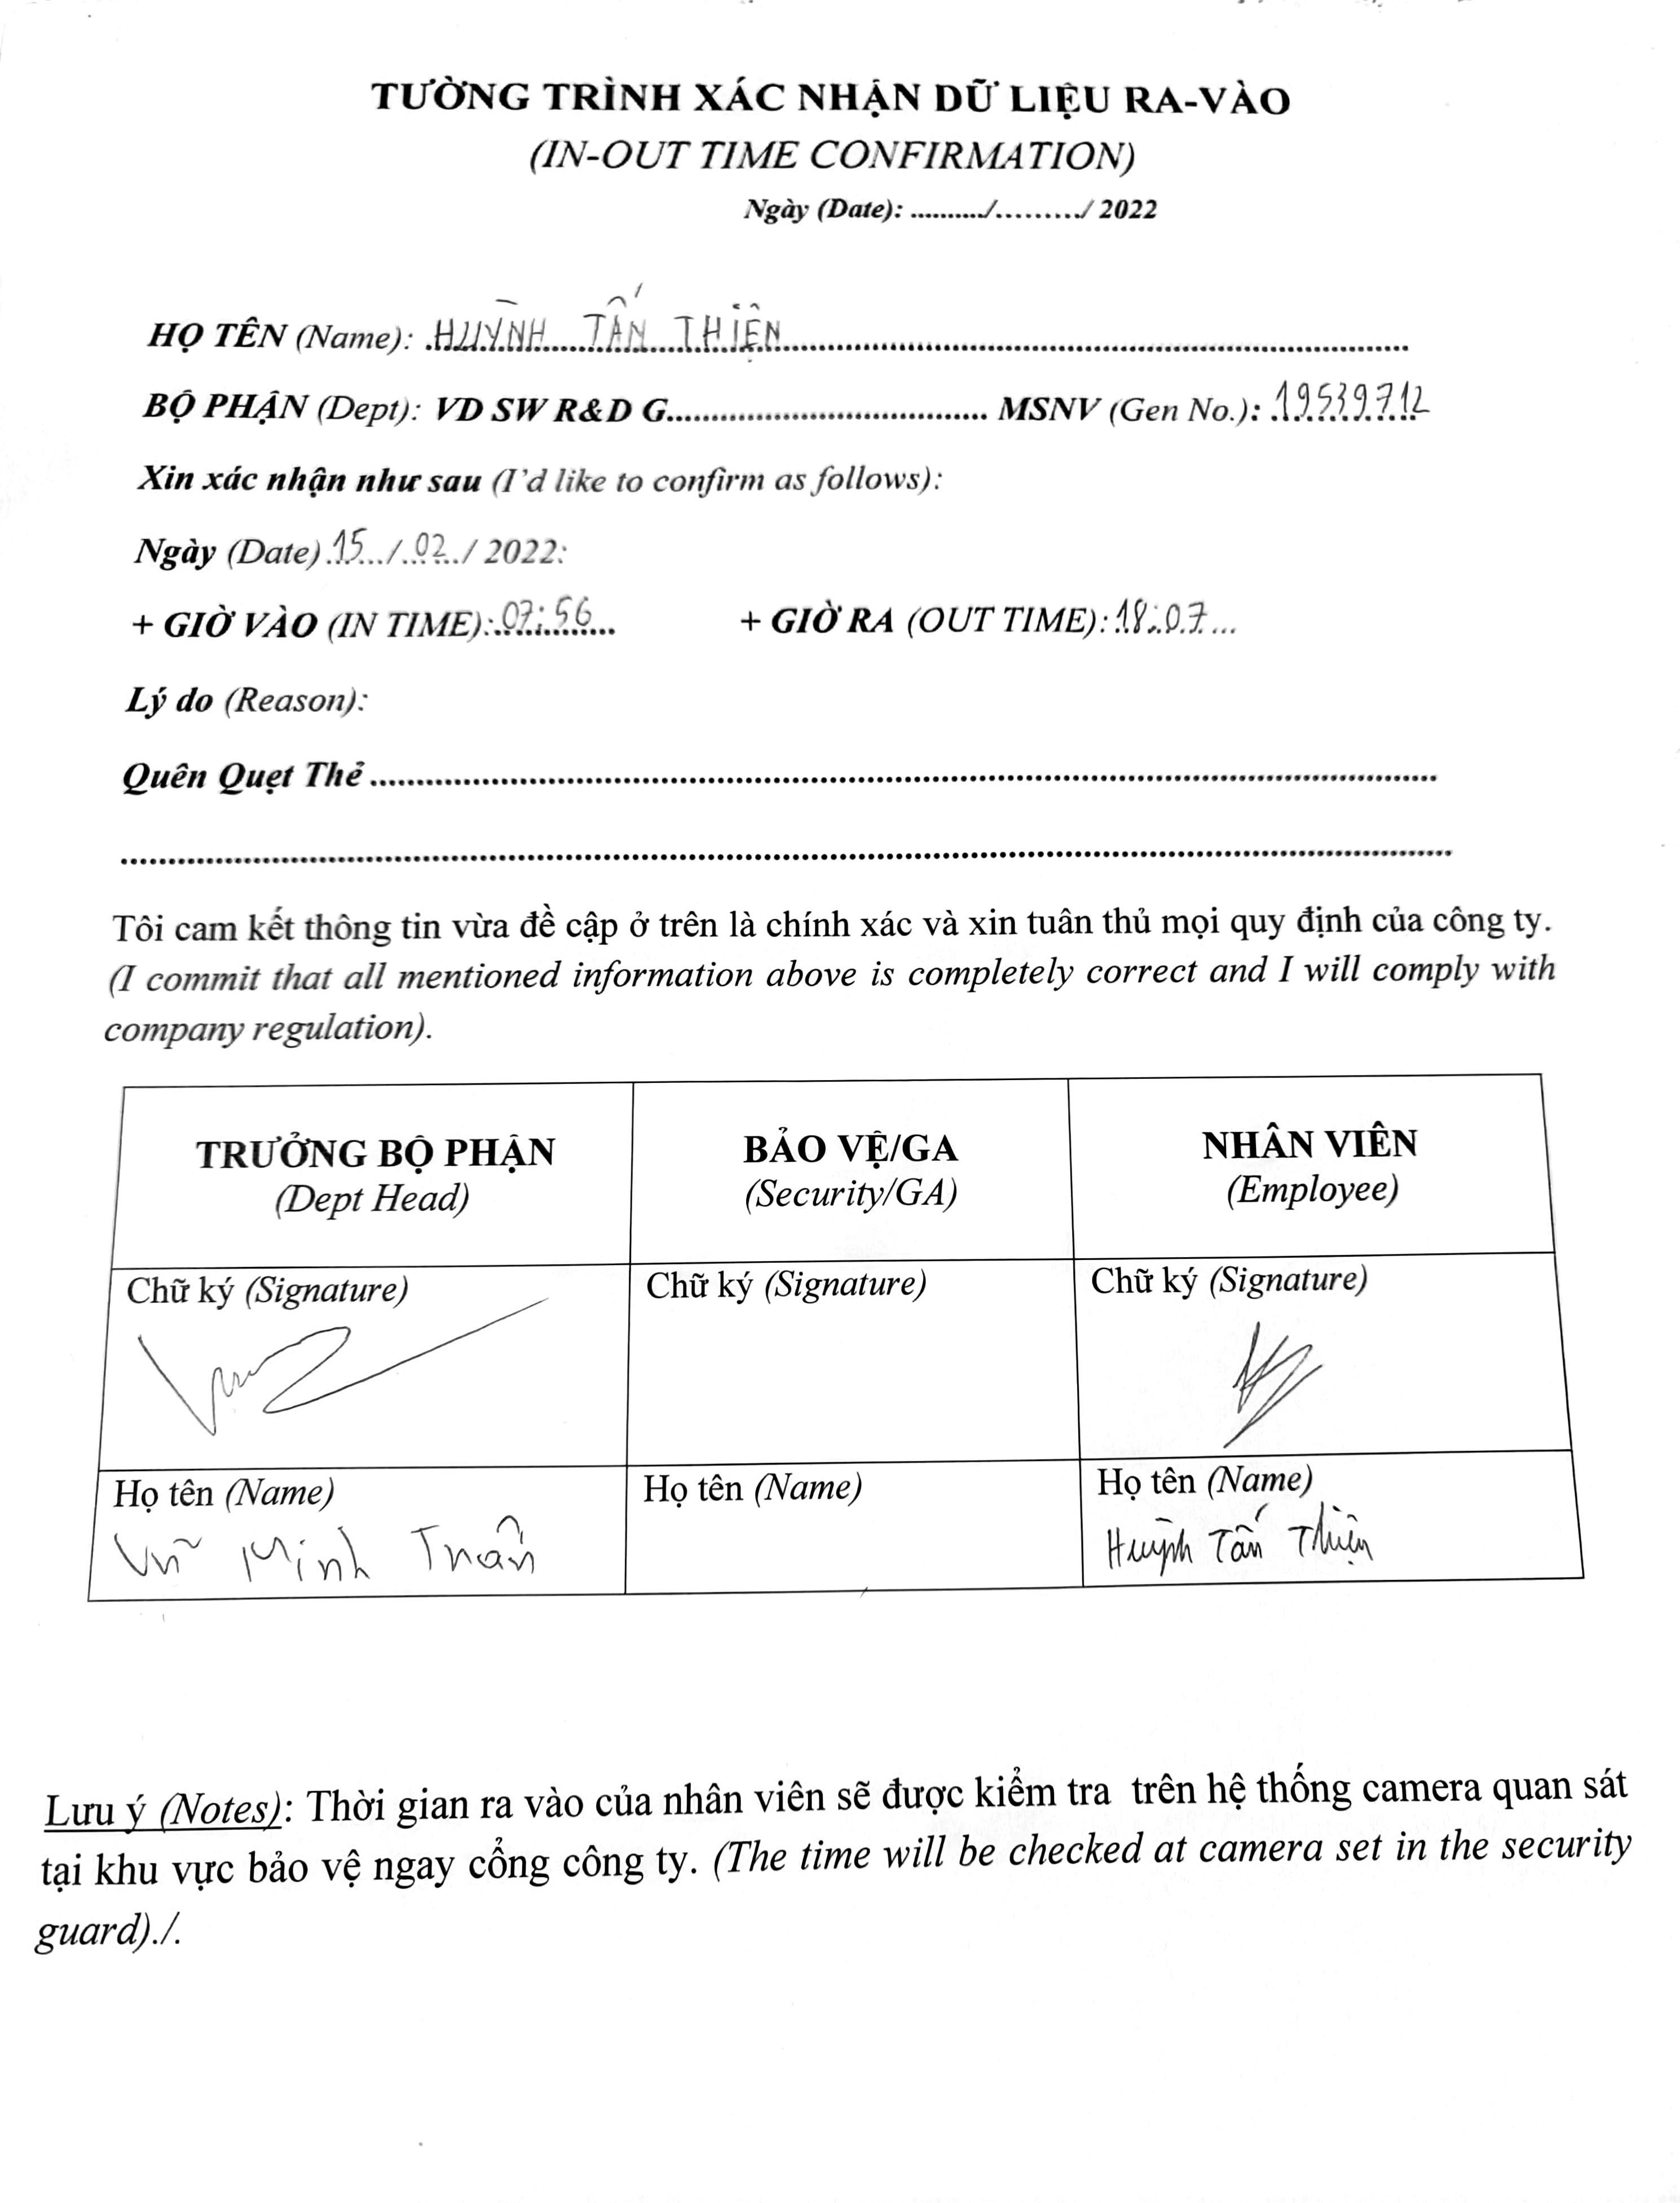 TƯỜNG TRÌNH XÁC NHẬN DỮ LIỆU RA-VÀO
(IN-OUT TIME CONFIRMATION)
Ngày (Date): ........../........../ 2022
HỌ TÊN (Name): HUỲNH TẤN THIỆN
BỘ PHẬN (Dept): VD SW R&D G.................................. MSNV (Gen No.): 19539712
Xin xác nhận như sau (I'd like to confirm as follows):
Ngày (Date) 15 / 02 / 2022:
+ GIỜ VÀO (IN TIME): 07:56 + GIỜ RA (OUT TIME): 18:07
Lý do (Reason):
Quên Quẹt Thẻ
Tôi cam kết thông tin vừa đề cập ở trên là chính xác và xin tuân thủ mọi quy định của công ty.
(I commit that all mentioned information above is completely correct and I will comply with
company regulation).
TRƯỞNG BỘ PHẬN BẢO VỆ/GA NHÂN VIÊN
(Dept Head) (Security/GA) (Employee)
Chữ ký (Signature) Chữ ký (Signature) Chữ ký (Signature)
Họ tên (Name) Họ tên (Name) Họ tên (Name)
Vũ Minh Tuấn Huỳnh Tấn Thiện
Lưu ý (Notes): Thời gian ra vào của nhân viên sẽ được kiểm tra trên hệ thống camera quan sát
tại khu vực bảo vệ ngay cổng công ty. (The time will be checked at camera set in the security
guard)./.